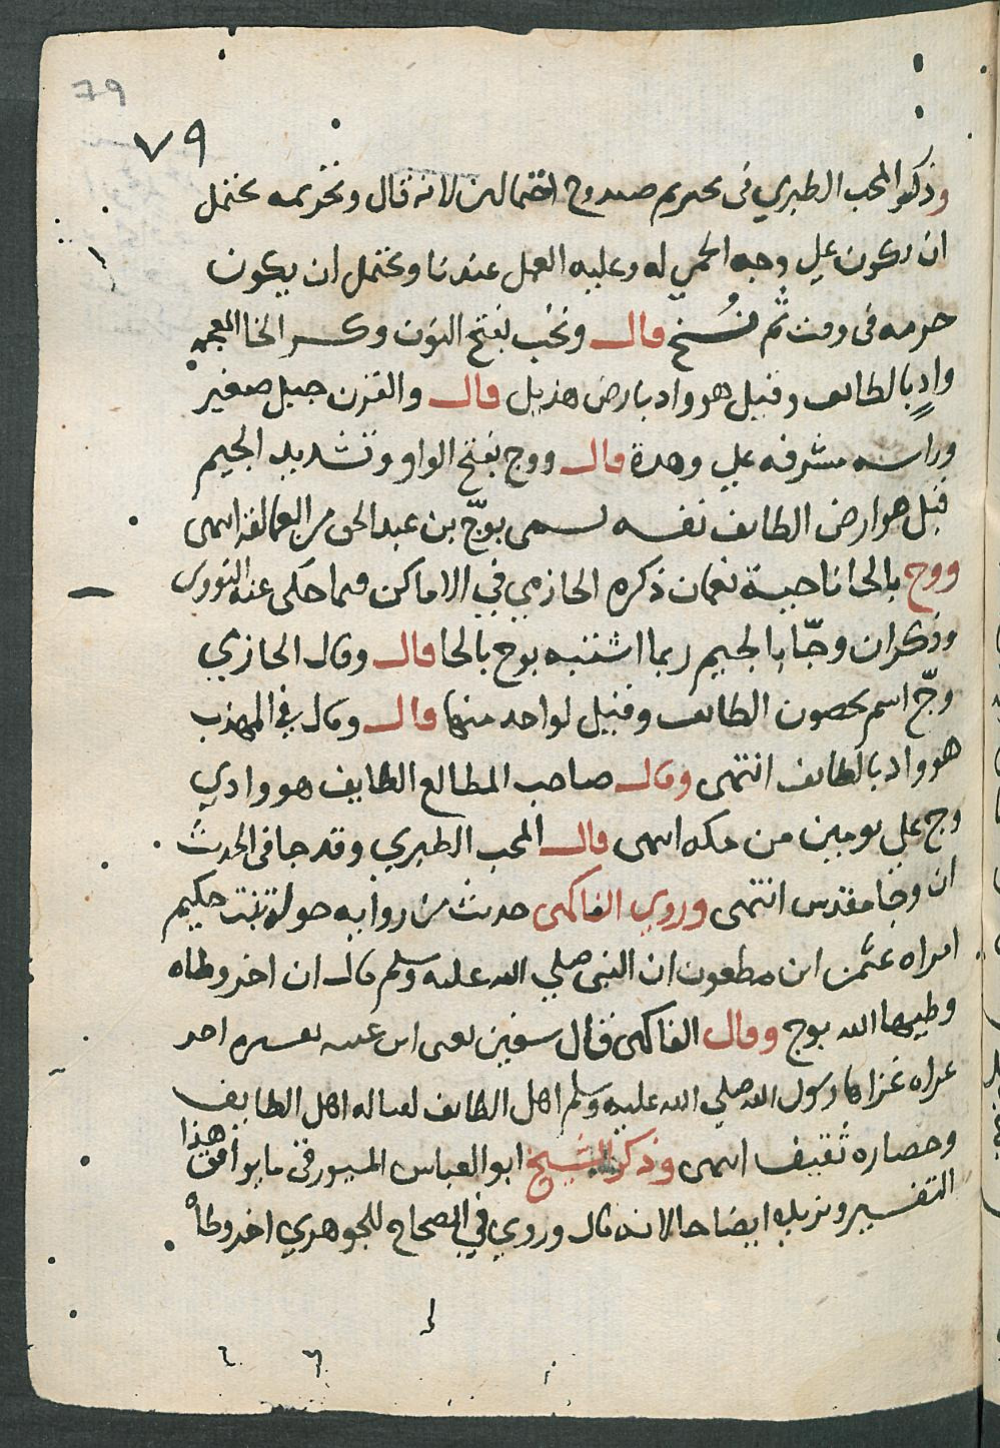 79
٧٩
وذكر المحب الطبري في تحريم صيد وج احتمالين لانه قال وتحريمه يحتمل
ان يكون علي وجه الحمي له وعليه العمل عندنا ويحتمل ان يكون
حرمه في وقت ثم نُسخ قال ونخب بفتح النون وكسر الخا المعجمه
وادٍ بالطائف وقيل هو واد بارض هذيل قال والقرن جبل صغير
وراسه مشرفه علي وهدة قال ووج بفتح الواو وتشديد الجيم
قيل هو ارض الطايف نفسه سمي بوجّ بن عبد الحي من العمالقه انتهى
ووح بالحا ناحية نعمان ذكره الحازمي في الاماكن فيما حكى عنه النووى
وذكر ان وجّا بالجيم ربما اشتبه بوح بالحا قال وقال الحازمي
وجّ اسم لحصون الطائف وقيل لواحد منها قال وقال في المهذب
هو واد بالطائف انتهى وقال صاحب المطالع الطايف هو وادي
وج علي يومين من مكه انتهى قال المحب الطبري وقد جا في الحديث
ان وجا مقدس انتهى وروي الفاكهى حديث من رواية خولة بنت حكيم
امراه عثمن ابن مظعون ان النبى صلي الله عليه وسلم قال ان اخر وطاه
وطيها الله بوج وقال الفاكهى قال سفين يعني ابن عيينه تفسيره اخر
غزاه غزاها رسول الله صلي الله عليه وسلم اهل الطائف لقتاله اهل الطايف
وحصاره ثقيف انتهى وذكر الشيخ ابو العباس الميورقى ما يوافق هذا
التفسير ويزيده ايضاحا لانه قال وروي في الصحاح للجوهري اخر وطاه